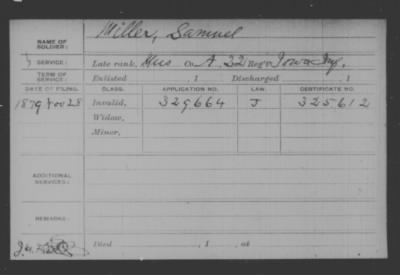 NAME OF SOLDIER: Miller, Samuel
SERVICE: Late rank, Mus Co. A, 32 Reg't Iowa Inf.
TERM OF SERVICE: Enlisted , 1 Discharged , 1
DATE OF FILING. CLASS. APPLICATION NO. LAW. CERTIFICATE NO.
1879 Nov 28 Invalid, 329664 J 325612
Widow,
Minor,
ADDITIONAL SERVICES:
REMARKS:
Died , 1 , at